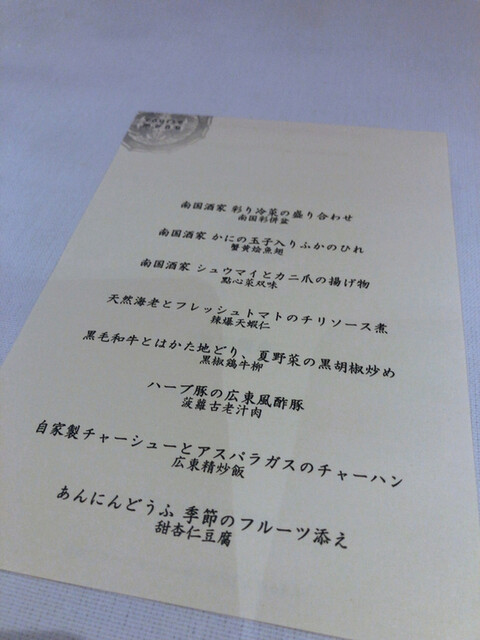 南国酒家 彩り冷菜の盛り合わせ
南国彩併盆
南国酒家 かにの玉子入りふかのひれ
蟹黄燴魚翅
南国酒家 シュウマイとカニ爪の揚げ物
點心菜双味
天然海老とフレッシュトマトのチリソース煮
辣爆天蝦仁
黒毛和牛とはかた地どり、夏野菜の黒胡椒炒め
黒椒鶏牛柳
ハーブ豚の広東風酢豚
菠蘿古老汁肉
自家製チャーシューとアスパラガスのチャーハン
広東精炒飯
あんにんどうふ 季節のフルーツ添え
甜杏仁豆腐